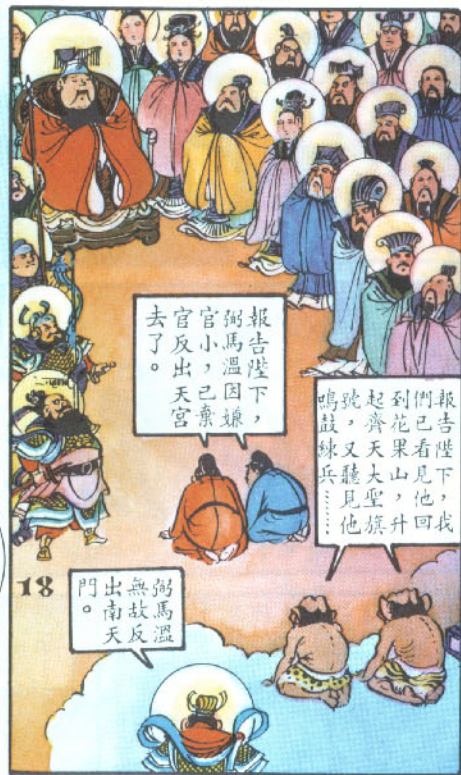 報告陛下，
弼馬溫因嫌
官小，已棄
官反出天宮
去了。
報告陛下，我
們已看見他回
到花果山，升
起齊天大聖旗
號，又聽見他
鳴鼓練兵……
18
弼馬溫
無故反
出南天
門。